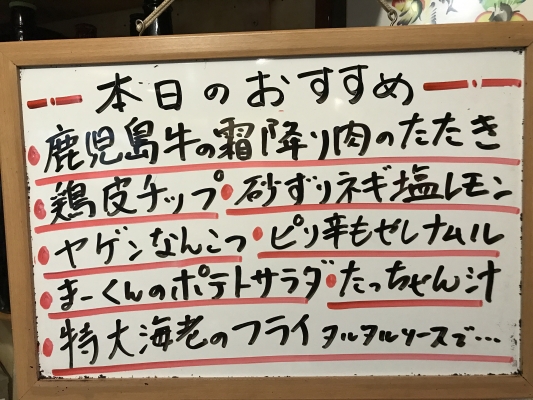 本日のおすすめ
・鹿児島牛の霜降り肉のたたき
・鶏皮チップ・砂ずりネギ塩レモン
・ヤゲンなんこつ・ピリ辛もぜしナムル
・まーくんのポテトサラダ・たっちゃん汁
・特大海老のフライ タルタルソースで…